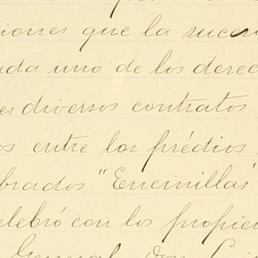 ciones que la suce
cada uno de los derec
es diversos contratos
os entre los prédios
brados "Encinillas"
celebró con los propie
General, Don